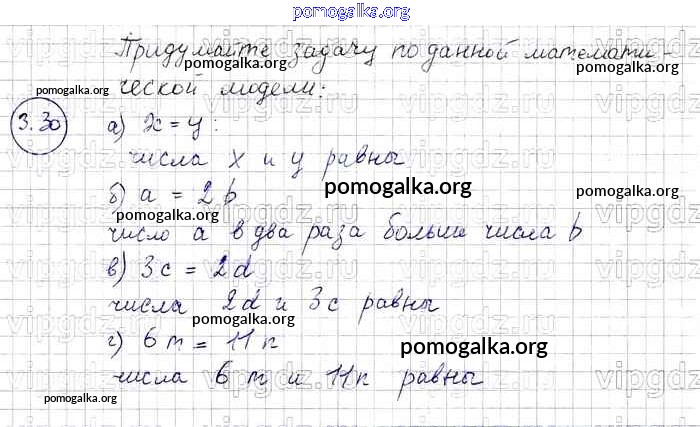 pomogalka.org
Придумайте задачу по данной математи-
pomogalka.org
ческой модели:
3.30
а) x = y:
числа x и y равны
pomogalka.org
б) a = 2b
pomogalka.org
число a в два раза больше числа b
в) 3c = 2d
числа 2d и 3c равны
pomogalka.org
г) 6m = 11n
pomogalka.org
числа 6m и 11n равны
pomogalka.org